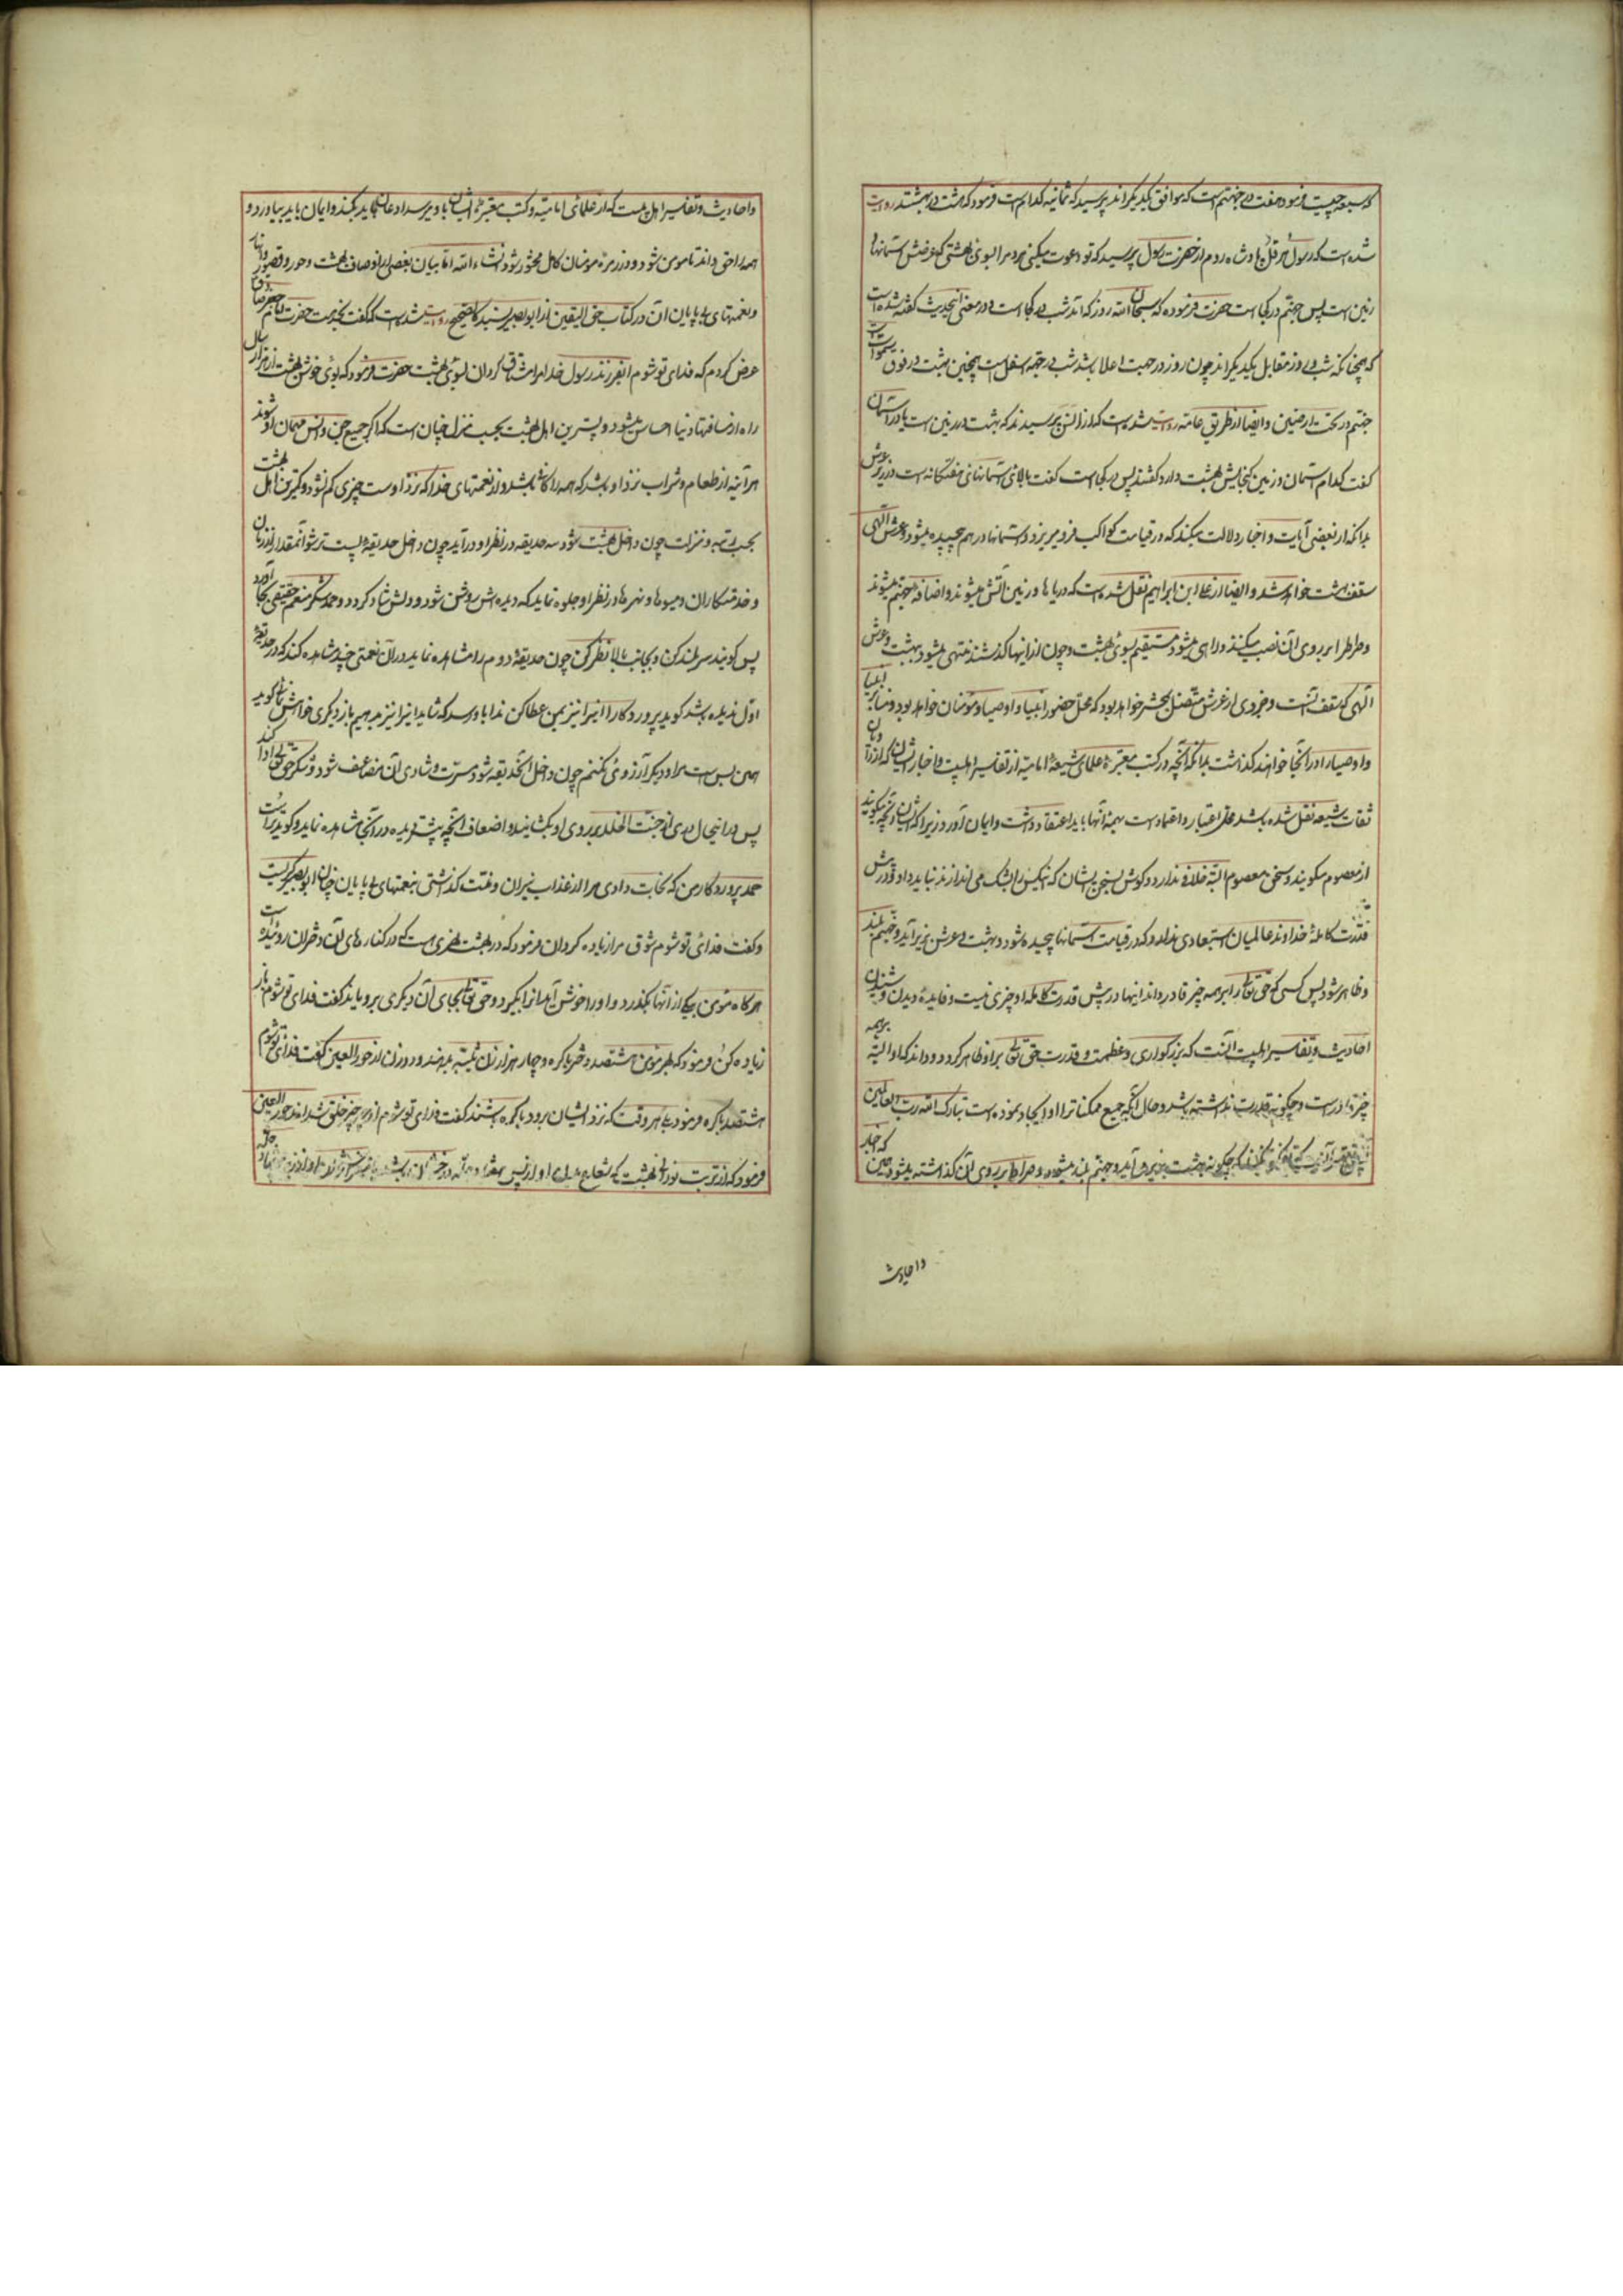 که سبعه چیست فرمود هفت در جهنم است که موافق یکدیگراند پرسید که ثمانیه کدام است فرمود که هشت در بهشتند روایت
شده است که رسول هرقل پادشاه روم از حضرت رسول پرسید که تو دعوت میکنی مردم را بسوی بهشتی که عرضش آسمانها و
زمین است پس جهنم در کجا است حضرت فرموده که سبحان الله روز که آمد شب در کجا است و در معنی اینحدیث گفته شده است
که همچنانکه شب و روز مقابل یکدیگراند چون روز در جهت اعلا باشد شب در جهة اسفل است همچنین بهشت در فوق سموات
جهنم در تحت ارضین و ایضا از طریق عامه روایت شده است که از انس پرسیدند که بهشت در زمین است یا در آسمان
گفت کدام آسمان و زمین گنجایش بهشت دارد گفتند پس در کجا است گفت بالای آسمانهای هفتگانه است در زیر عرش
بدانکه از بعضی آیات و اخبار دلالت میکند که در قیامت کواکب فرو میریزد و آسمانها در هم پیچیده میشود و عرش الهی
سقف بهشت خواهد شد و ایضا از علی ابن ابراهیم نقل شده است که دریاها و زمین آتش میشوند و اضافه جهنم میشوند
و صراط را بر روی آن نصب میکنند و راهی میشود مستقیم بسوی بهشت و چون از اینها گذشتند منتهی میشود ببهشت و عرش
الهی که سقف آنست و جزوی از عرش متصل بمحشر خواهد بود که محل حضور انبیا و اوصیا و مؤمنان خواهد بود و منابر انبیا
و اوصیا را در آنجا خواهند گذاشت بدانکه آنچه در کتب معتبرهٔ علمای شیعهٔ امامیه از تفاسیر اهلبیت و اخبار ایشان که از راویان
ثقات شیعه نقل شده باشد محل اعتبار و اعتماد است بهمهٔ آنها باید اعتقاد داشت و ایمان آورد زیرا که ایشان آنچه میگویند
از معصوم میگویند و سخن معصوم البته خلاف ندارد و گوش بسخن ایشان که بشک می اندازند نباید داد و در پیش
قدرت کاملهٔ خداوند عالمیان استبعادی ندارد که در قیامت آسمانها پیچیده شود و بهشت و عرش بزیر آید و جهنم بلند
و ظاهر شود پس کسی که حق تعالی را بر همه چیز قادر داند اینها در پیش قدرت کاملهٔ او چیزی نیست و فایدهٔ دیدن و شنیدن
احادیث و تفاسیر اهلبیت آنست که بزرگواری و عظمت و قدرت حق تعالی بر او ظاهر گردد و داند که او البته بر همه
چیز قادر است و چگونه قدرت نداشته باشد و حال آنکه جمیع ممکنات را او ایجاد نموده است تبارک الله رب العالمین
که چگونه بهشت بزیر می آید و جهنم بلند میشود و صراط بر روی آن گذاشته میشود
و احادیث
و احادیث و تفاسیر اهل بیت که از علمای امامیه و کتب معتبرهٔ ایشان باو برسد اذعان باید بکند و ایمان باید بیاورد و
همه را حق داند تا مومن شود و در زمرهٔ مؤمنان کامل محشور شود انشاء الله اما بیان بعضی از اوصاف بهشت و حور و قصور و انهار
و نعمتهای بی پایان آن در کتاب حق الیقین از ابو بصیر بسند کالصحیح روایت شده است که گفت بخدمت حضرت امام جعفر صادق
عرض کردم که فدای تو شوم ای فرزند رسول خدا مرا مشتاق گردان بسوی بهشت حضرت فرمود که بوی خوش بهشت از هزار سال
راه از مسافتهای دنیا احساس میشود و پست ترین اهل بهشت بحسب منزل چنان است که اگر جمیع جن و انس مهمان او شوند
هر آینه از طعام و شراب نزد او باشد که همه را کافی باشد و از نعمتهای خدا که نزد اوست چیزی کم نشود و کمترین اهل بهشت
بحسب رتبه و منزلت چون داخل بهشت شود سه حدیقه در نظر او درآید چون داخل حدیقهٔ پست تر شود آنمقدار از زنان
و خدمتکاران و میوها و نهرها در نظر او جلوه نماید که دیده اش روشن شود و دلش شاد گردد و حمد و شکر منعم حقیقی بجا آورد
پس گویند سر بلند کن و بجانب بالا نظر کن چون حدیقهٔ دوم را مشاهده نماید در آن نعمتی چند مشاهده کند که در حدیقهٔ
اول ندیده باشد گوید پروردگارا اینرا نیز بمن عطا کن ندا باو رسد که شاید اینرا نیز بدهیم باز دیگری خواهش نمائی گوید
همین بس است مرا و دیگر آرزوئی نکنم چون داخل آنحدیقه شود مسرت و شادی آن مضاعف شود و شکر حق تعالی ادا کند
پس در اینحال دری از جنت الخلد بر روی او بگشایند و اضعاف آنچه پیشتر دیده در آنجا مشاهده نماید و گوید تراست
حمد پروردگار من که نجات دادی مرا از عذاب نیران و منت گذاشتی بنعمتهای بی پایان جنان ابو بصیر گریست
و گفت فدای تو شوم شوق مرا زیاده گردان فرمود که در بهشت نهری است که در کنارهای آن دختران روئیده است
هر گاه مؤمن بیکی از آنها بگذرد و او را خوش آید آنرا بگیرد و حق تعالی بجای آن دیگری برویاند گفت فدای تو شوم باز
زیاده کن فرمود که بهر مؤمن هشتصد دختر باکره و چهار هزار زن ثیبه بدهند و دو زن از حور العین گفت فدای تو شوم
هشتصد باکره فرمود بلی هر وقت که نزد ایشان برود باکره باشند گفت فدای تو شوم از چه چیز خلق شده اند حور العین
فرمود که از تربت نورانی بهشت که شعاع او از پس